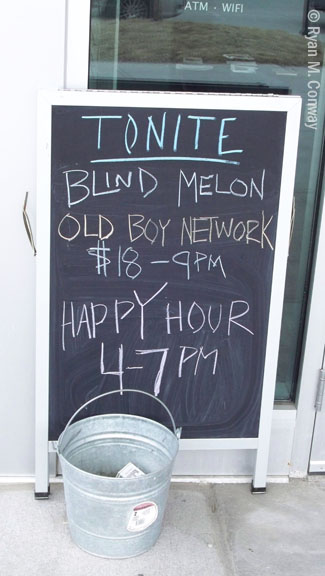 ATM · WIFI
© Ryan M. Conway
TONITE
BLIND MELON
OLD BOY NETWORK
$18-9PM
HAPPY HOUR
4-7PM